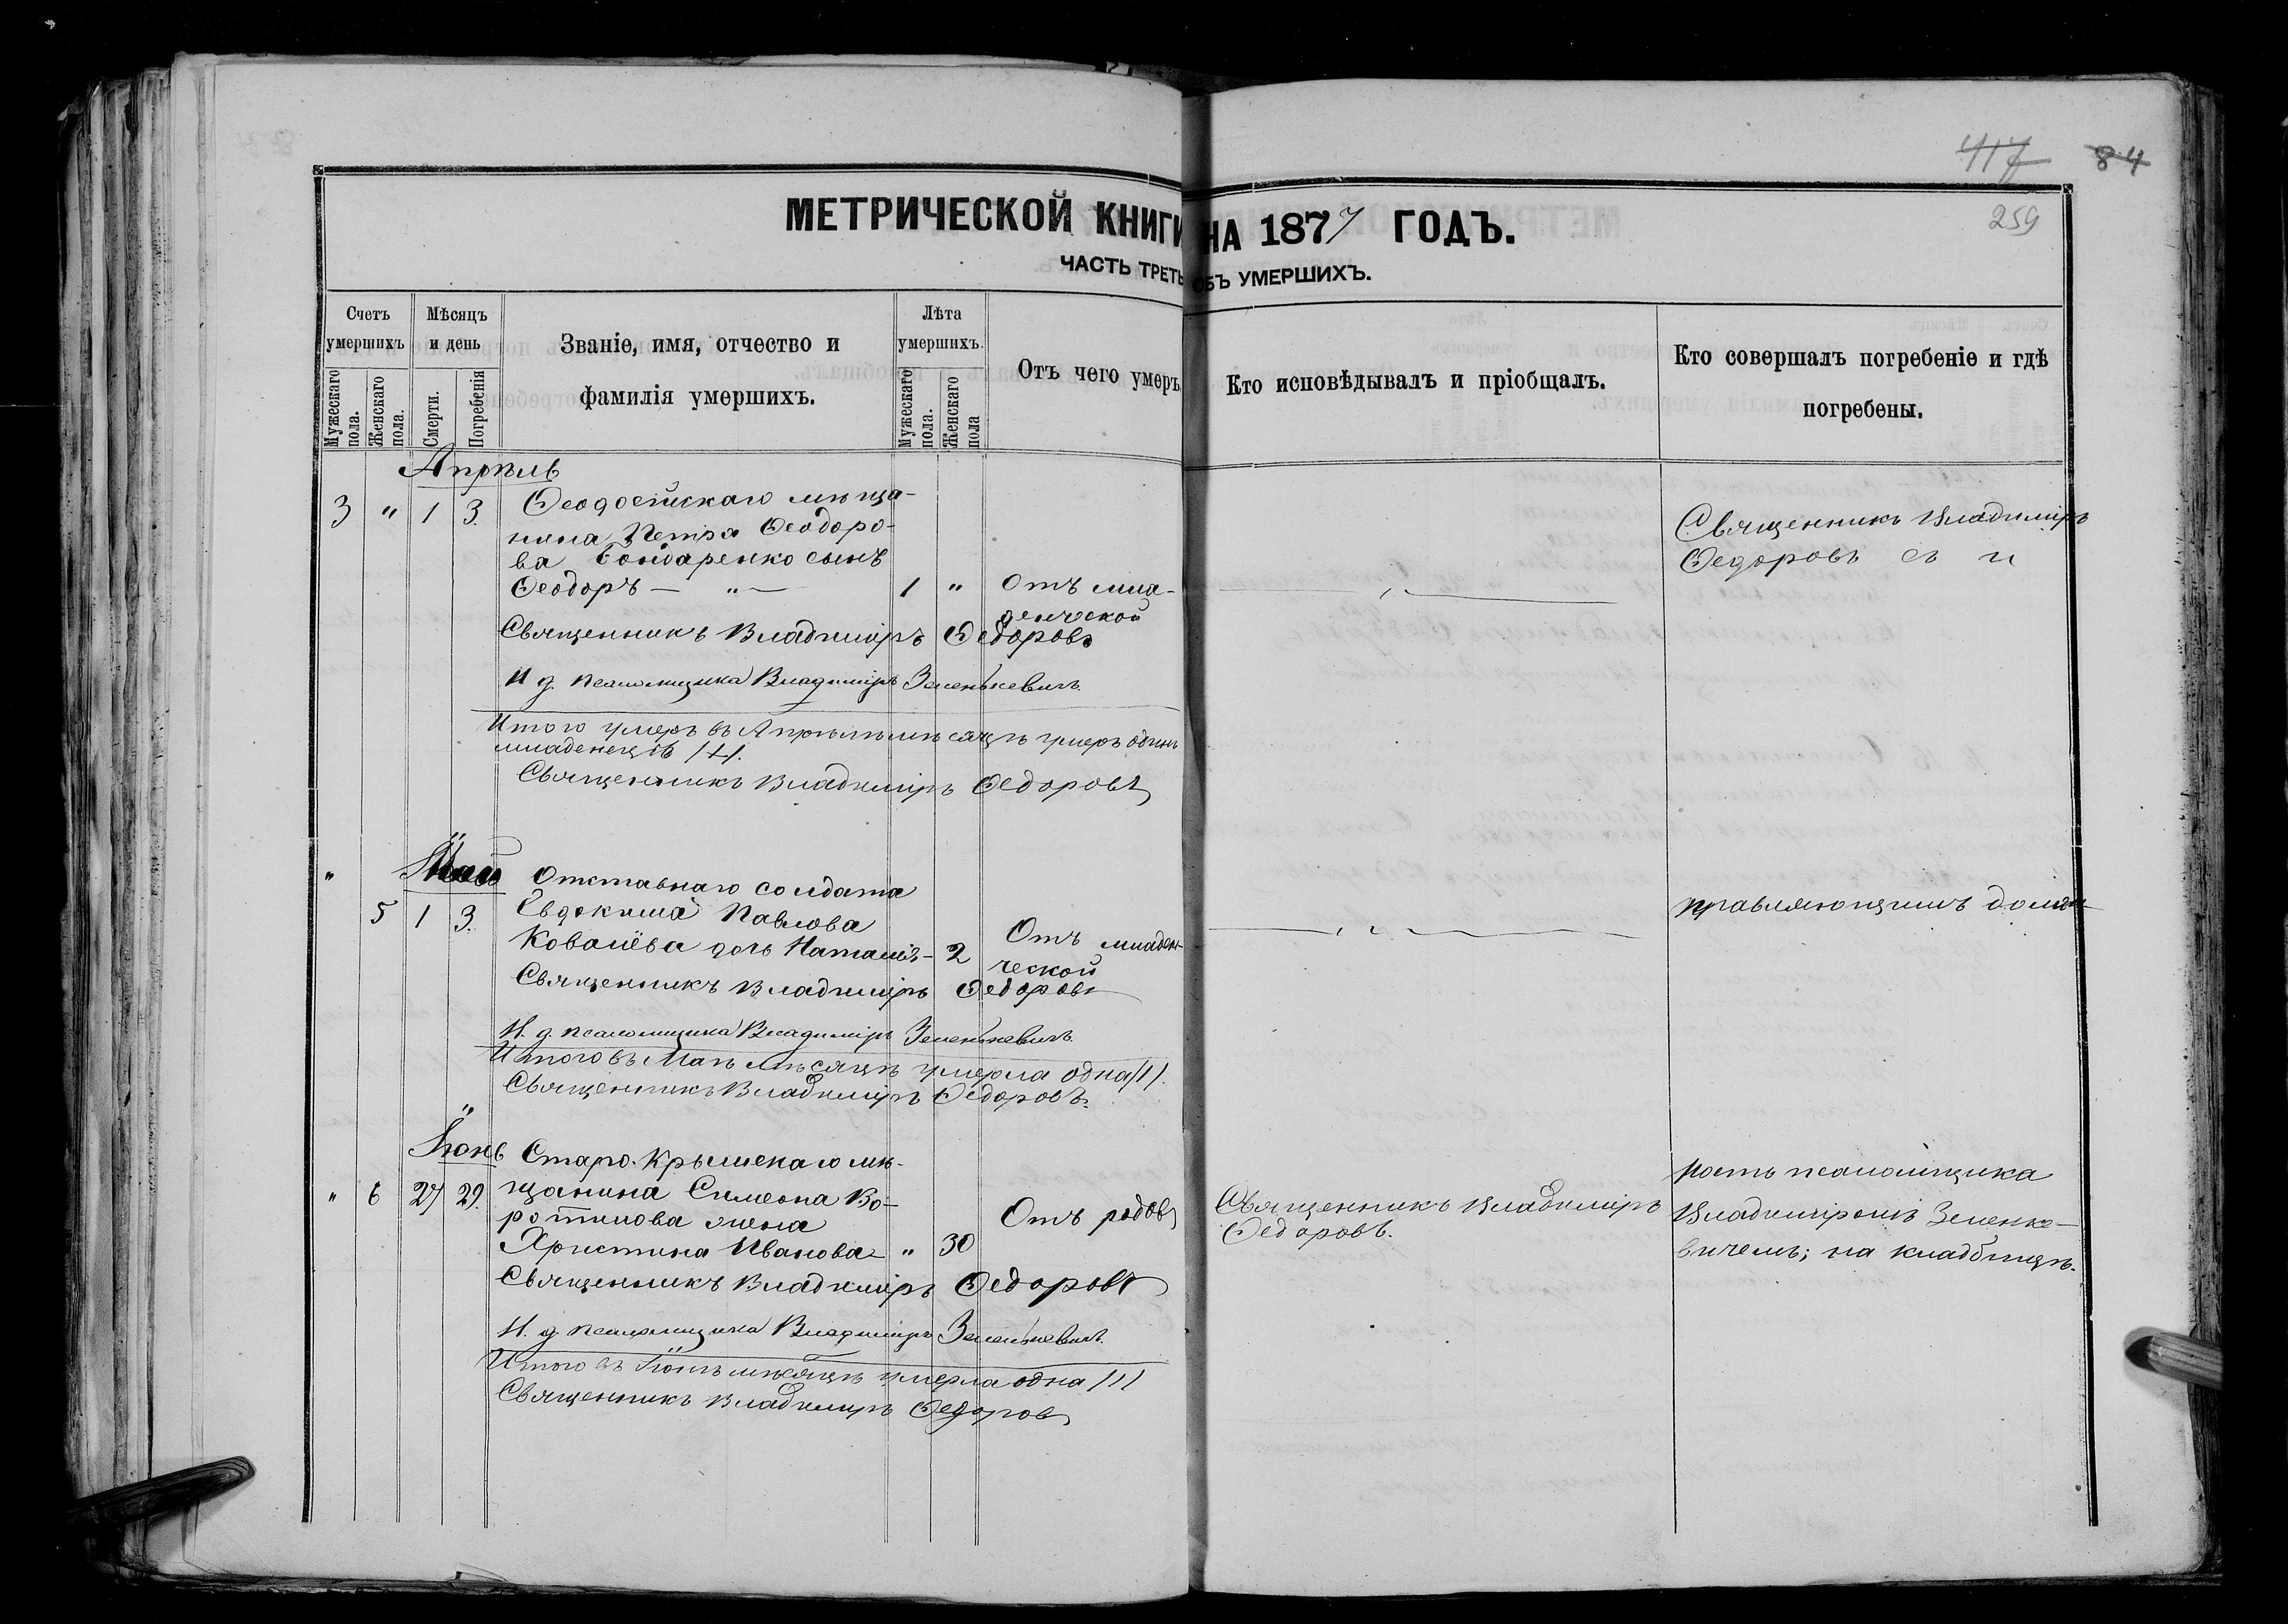 417 84
МЕТРИЧЕСКОЙ КНИГИ НА 1877 ГОДЪ.
259
ЧАСТЬ ТРЕТЬ ОБЪ УМЕРШИХЪ.
Счетъ умершихъ
Мѣсяцъ и день
Званіе, имя, отчество и фамилія умершихъ.
Лѣта умершихъ.
Отъ чего умеръ
Кто исповѣдывалъ и пріобщалъ.
Кто совершалъ погребеніе и гдѣ погребены.
Мужескаго пола.
Женскаго пола.
Смерти.
Погребенія
Мужескаго пола.
Женскаго пола
Апрѣль
3 " 1 3. Ѳеодосійскаго мѣща-
нина Петра Ѳеодоро-
ва Бондаренко сынъ
Ѳеодоръ — " — 1 " Отъ мла-
денческой
Священникъ Владиміръ
Ѳедоровъ съ и
Священникъ Владиміръ Ѳедоровъ
И д. псаломщика Владиміръ Зеленкевичъ.
Итого умеръ въ Апрѣлѣ мѣсяцѣ умеръ одинъ
младенецъ /1/.
Священникъ Владиміръ Ѳедоровъ
" Май
Отставнаго солдата
5 1 3. Евдокима Павлова
Ковалёва дочь Наталія — 2 Отъ младен-
ческой
правляющимъ долж-
Священникъ Владиміръ Ѳедоровъ
И. д. псаломщика Владиміръ Зеленкевичъ.
Итого въ Маѣ мѣсяцѣ умерла одна /1/.
Священникъ Владиміръ Ѳедоровъ.
Іюнь
Старо-Крымскаго мѣ-
" 6 27 29. щанина Симеона Во-
ротилова жена
Христина Иванова " 30 Отъ родовъ
Священникъ Владиміръ
Ѳедоровъ.
ность псаломщика
Владиміромъ Зеленке-
вичемъ; на кладбищѣ.
Священникъ Владиміръ Ѳедоровъ
И. д. псаломщика Владиміръ Зеленкевичъ.
Итого въ Іюнѣ мѣсяцѣ умерла одна /1/
Священникъ Владиміръ Ѳедоровъ